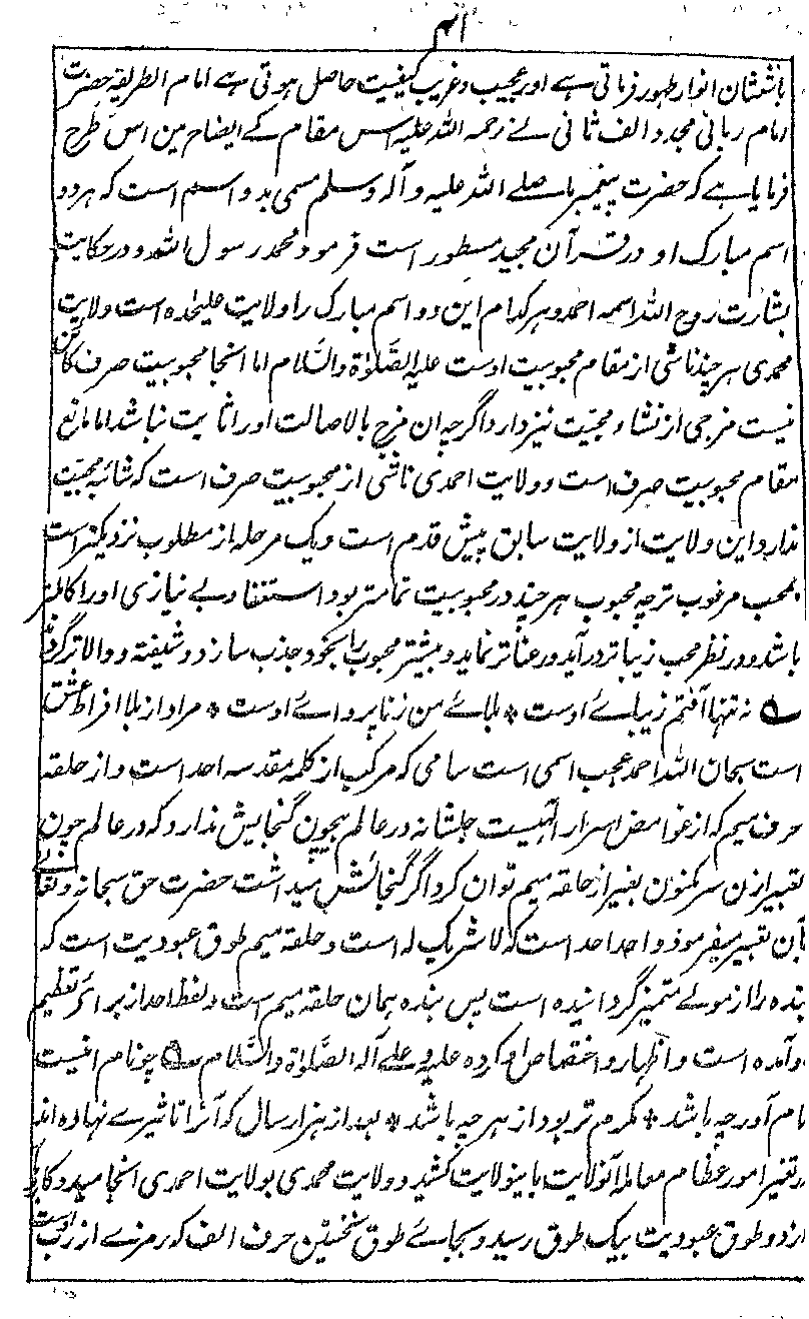 ۱۳۱
باشعشان انوار ظہور فرماتی ہے اور عجیب و غریب کیفیت حاصل ہوتی ہے امام الطریقہ حضرت
امام ربانی مجدد الف ثانی نے رحمہ اللہ علیہ اس مقام کے ایضاح مین اس طرح
فرمایا ہے کہ حضرت پیغمبر ما صلے اللہ علیہ و آلہ وسلم مسمی بدو اسم است کہ ہر دو
اسم مبارک او در قرآن مجید مسطور است فرمود محمد رسول اللہ و در حکایت
بشارت روح اللہ اسمہ احمد و ہر کدام این دو اسم مبارک را ولایت علیحدہ است ولایت
محمدی ہر چند ناشی از مقام محبوبیت اوست علیہ الصَّلوٰۃ والسَّلام اما آنجا محبوبیت صرف کائن
نیست مزجی از نشاء محبّیت نیز دارد اگرچہ آن مزج بالاصالت او را ثابت نباشد اما مانع
مقام محبوبیت صرف است و ولایت احمدی ناشی از محبوبیت صرف است کہ شائبہ محبّیت
ندارد این ولایت از ولایت سابق پیش قدم است و یک مرحلہ از مطلوب نزدیکتر است
بمحب مرغوب تر چہ محبوب ہر چند در محبوبیت تمامتر بود استغنا و بے نیازی او را کاملتر
باشد و در نظر محب زیباتر درآید و رعناتر نماید و بیشتر محبوب را بخود جذب سازد و شیفتہ و والاتر گرداند
؎ نہ تنہا آفتم زیبائے اوست * بلائے من زنا پروائے اوست * مراد از بلا افراط عشق
است سبحان اللہ احمد عجب اسمی است سامی کہ مرکب از کلمہ مقدسہ احد است و از حلقہ
حرف میم کہ از غوامض اسرار الٰہیست جلشانہ در عالم بیچون گنجایش ندارد کہ در عالم چون
تعبیر ازن سر مکنون بغیر از حلقہ میم توان کرد اگر گنجائش میداشت حضرت حق سبحانہ و تعالیٰ
بآن تعبیر میفرموذ و احد احد است کہ لا شریک لہ است و حلقہ میم طوق عبودیت است کہ
بندہ را از مولے متمیز گردانیدہ است پس بندہ ہمان حلقہ میم است و لفظ احد از برائے تعظیم
و آمدہ است و اظہار و اختصاص او کردہ علیہ و علے آلہ الصَّلوٰۃ والسَّلام ؎ چو نام اینست
نام آور چہ باشد * مکرم تر بود از ہر چہ باشد * بعد از ہزار سال کہ آنرا تاثیرے نہادہ اند
در تغیر امور عظام معاملہ آنولایت باینولایت کشید و ولایت محمدی بولایت احمدی انجامید و کار
از دو طوق عبودیت بیک طوق رسید و بجائے طوق نخستین حرف الف کہ رمزے از رب اوست